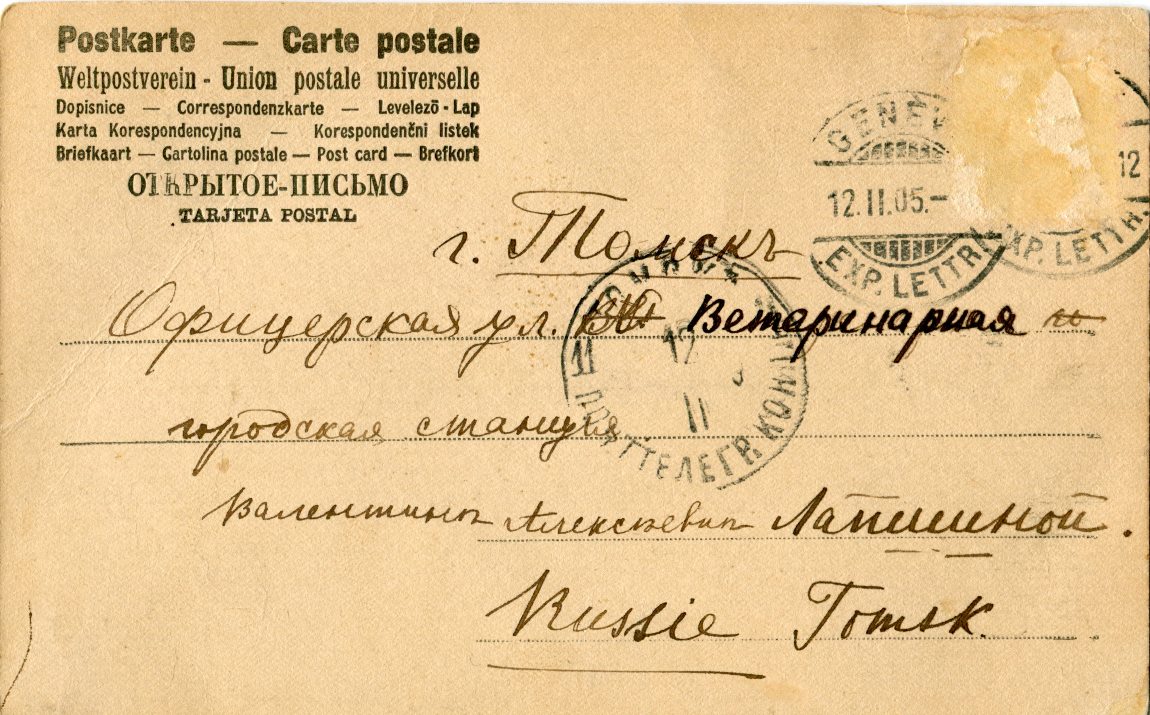 Postkarte — Carte postale
Weltpostverein - Union postale universelle
Dopisnice — Correspondenzkarte — Levelező - Lap
Karta Korespondencyjna — Korespondenčni listek
Briefkaart — Cartolina postale — Post card — Brefkort
ОТКРЫТОЕ-ПИСЬМО
TARJETA POSTAL
GENEV
12.II.05.-
EXP. LETTR.
12
EXP. LETTR.
г. Томскъ
Офицерская ул. Ветаринарная
городская станция
11
12
11
ПОЧ. ТЕЛЕГР. КОН
Валентинѣ Алексѣевнѣ Лапшиной.
Russie Tomsk.